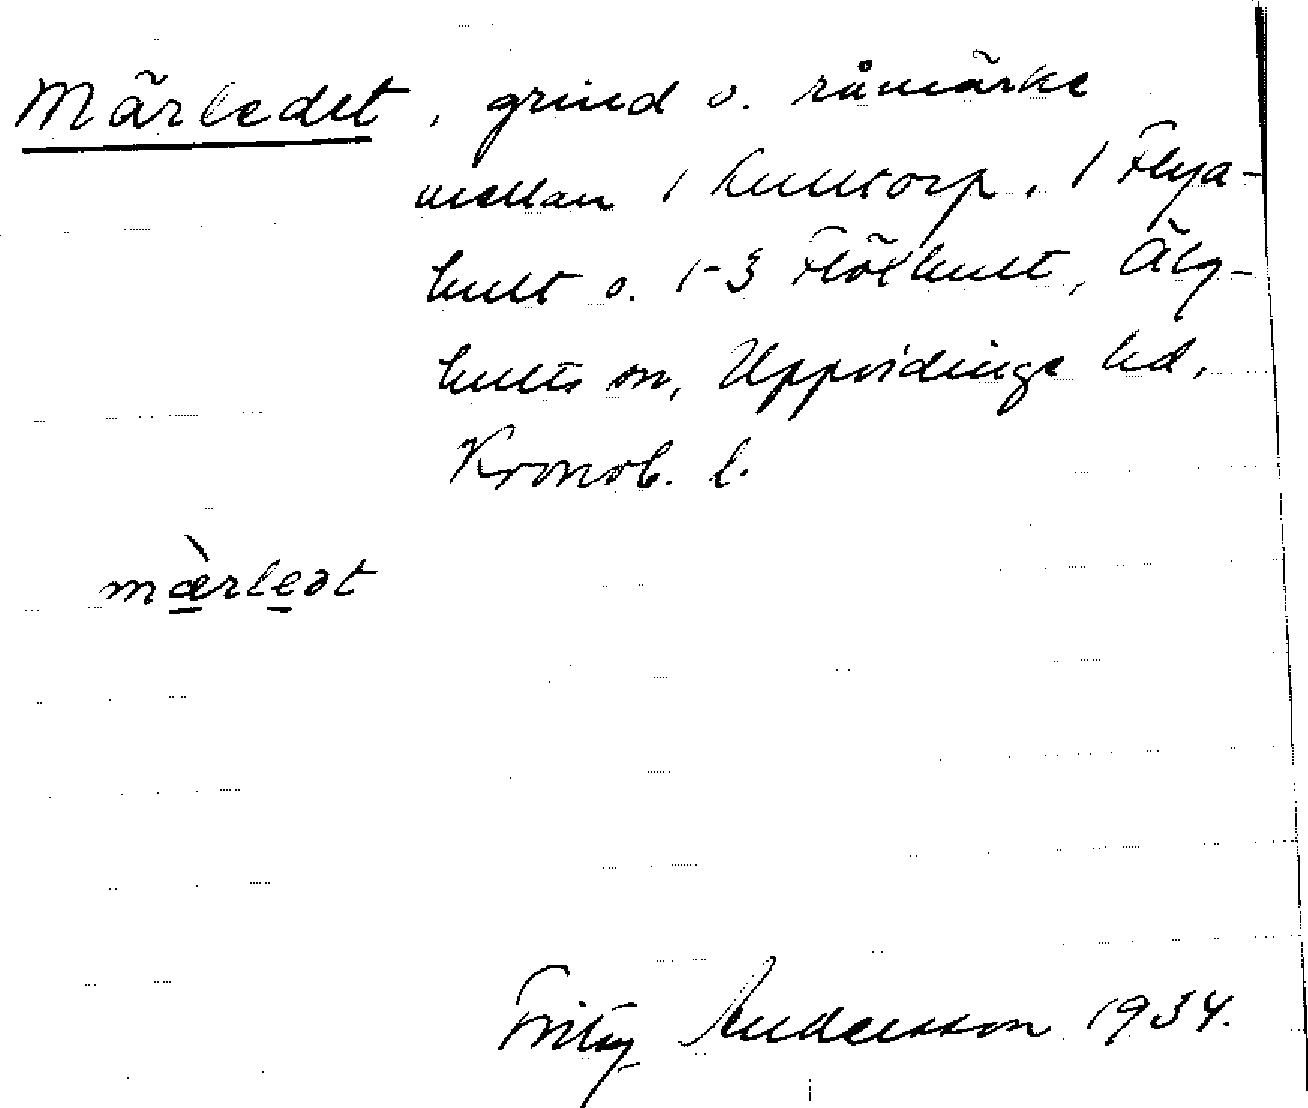 Märledet, grind o. råmärke
mellan 1 Hulltorp, 1 Flya-
hult o. 1-3 Flöxhult, Älg-
hults sn, Uppvidinge hd,
Kronob. l.
mæ̀rleət
Fritz Andersson 1934.